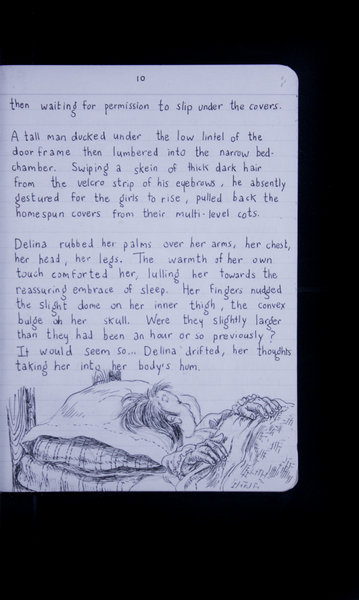 10
then waiting for permission to slip under the covers.
A tall man ducked under the low lintel of the
doorframe then lumbered into the narrow bed-
chamber. Swiping a skein of thick dark hair
from the velcro strip of his eyebrows, he absently
gestured for the girls to rise, pulled back the
homespun covers from their multi-level cots.
Delina rubbed her palms over her arms, her chest,
her head, her legs. The warmth of her own
touch comforted her, lulling her towards the
reassuring embrace of sleep. Her fingers nudged
the slight dome on her inner thigh, the convex
bulge on her skull. Were they slightly larger
than they had been an hour or so previously?
It would seem so... Delina drifted, her thoughts
taking her into her body's hum.